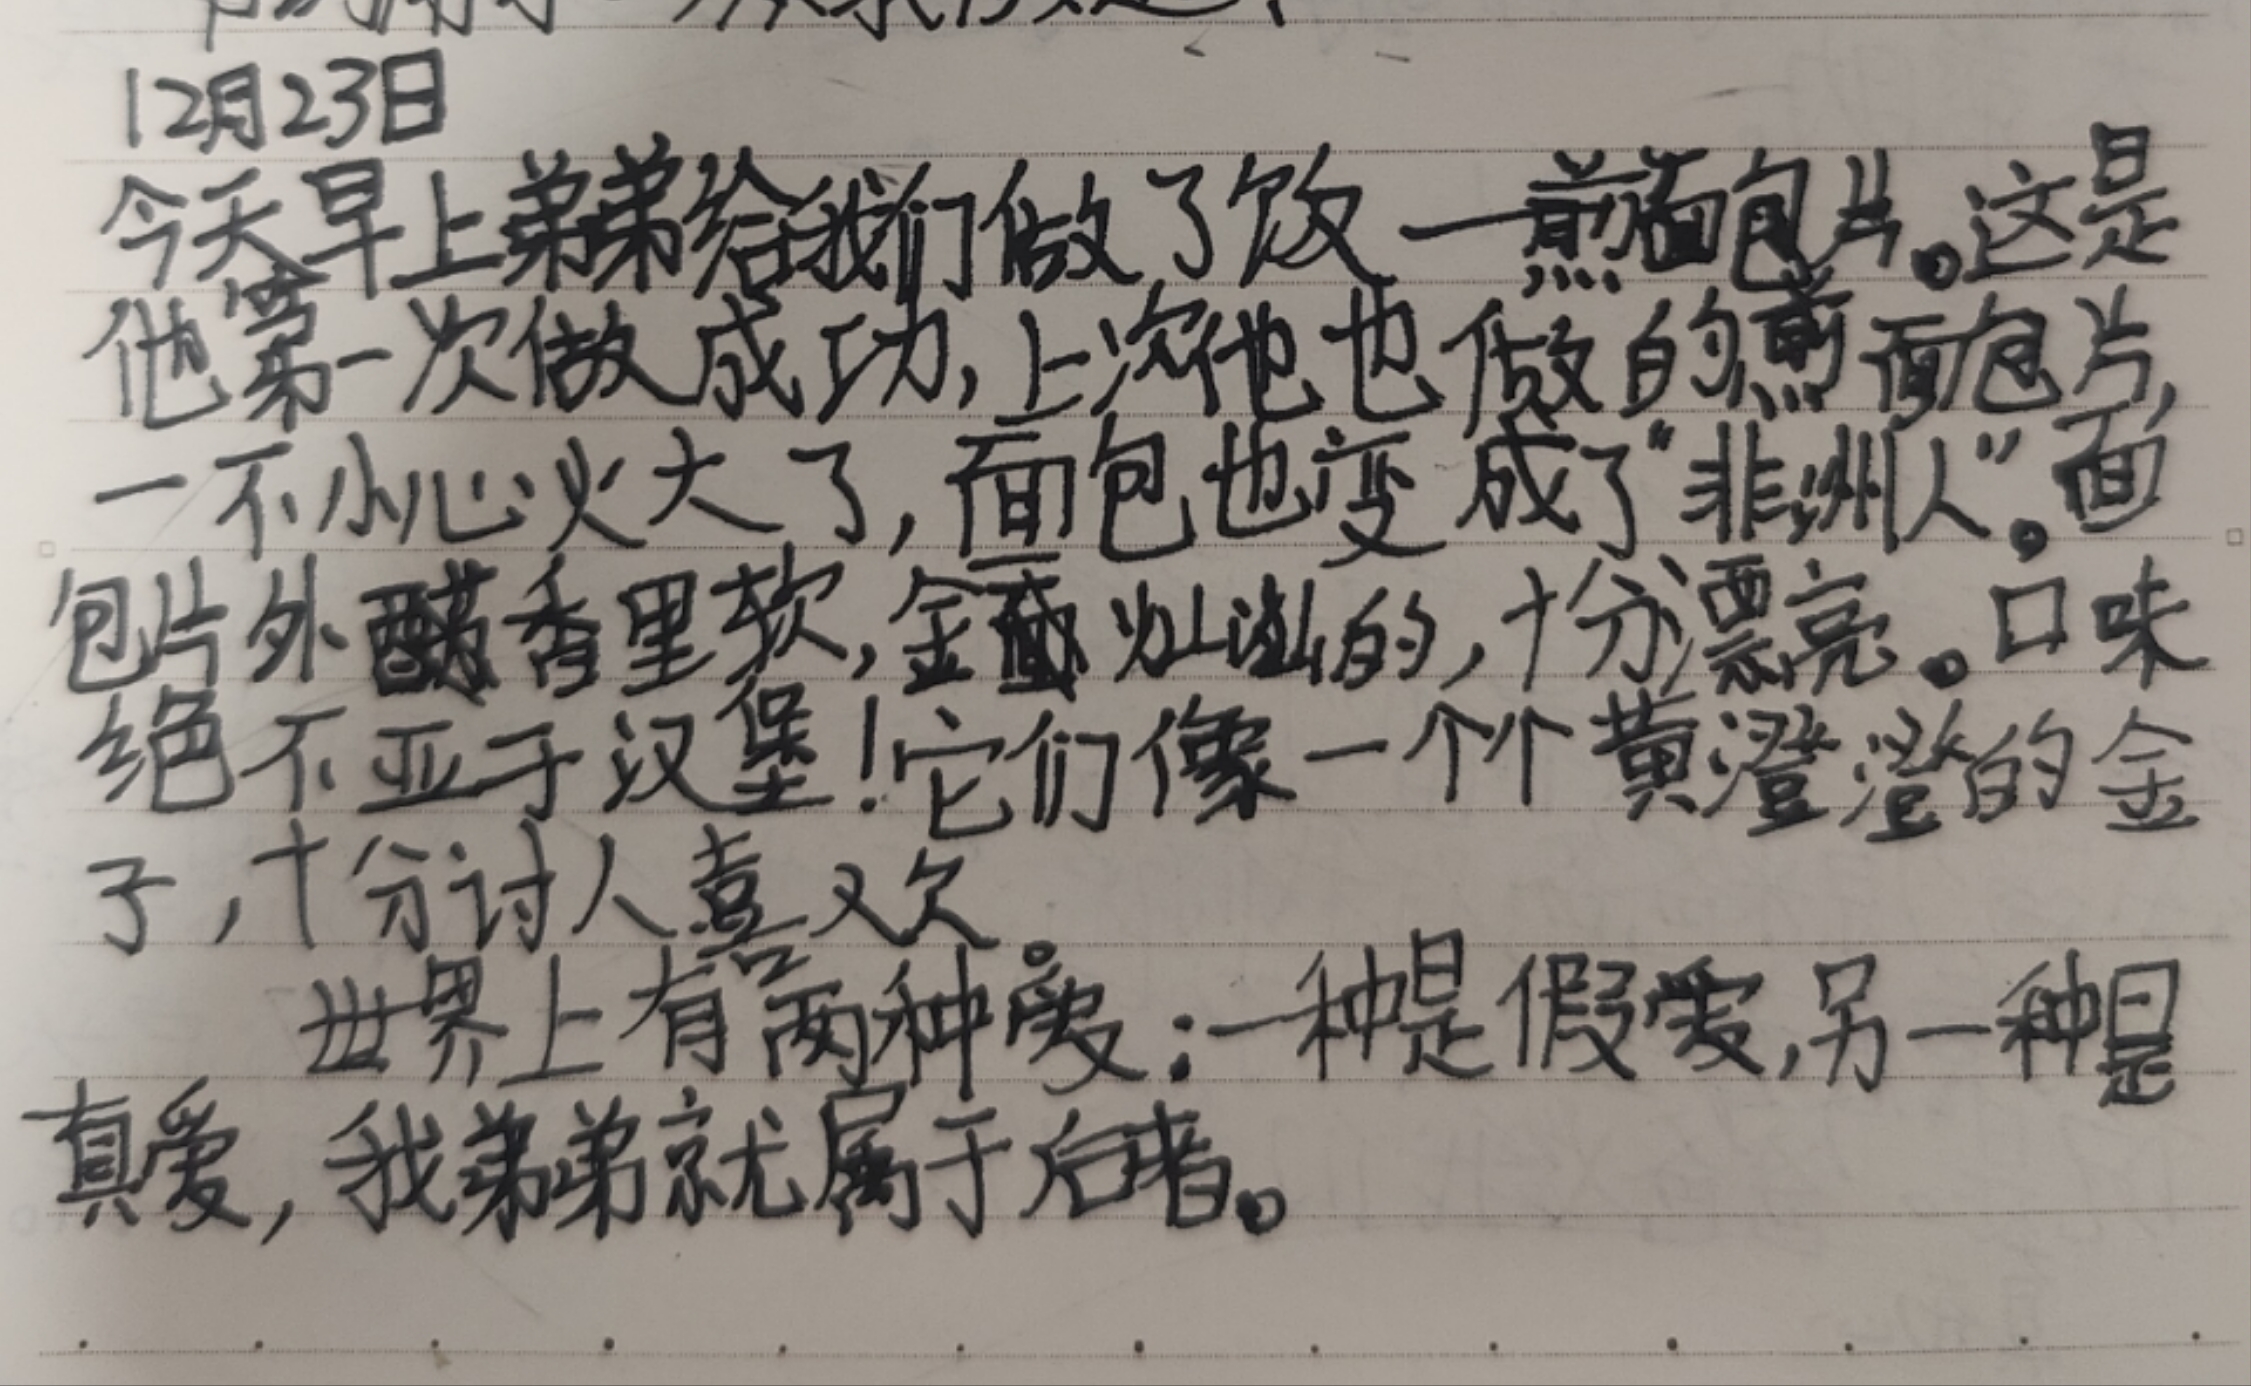 12月23日
今天早上弟弟给我们做了饭一煎面包片。这是
他第一次做成功,上次他也做的煎面包片,
一不小心火大了,面包也变成了“非洲人”。面
包片外香里软,金灿灿的,十分漂亮。口味
绝不亚于汉堡!它们像一个个黄澄澄的金
子,十分讨人喜欢。
世界上有两种爱:一种是假爱,另一种是
真爱,我弟弟就属于后者。